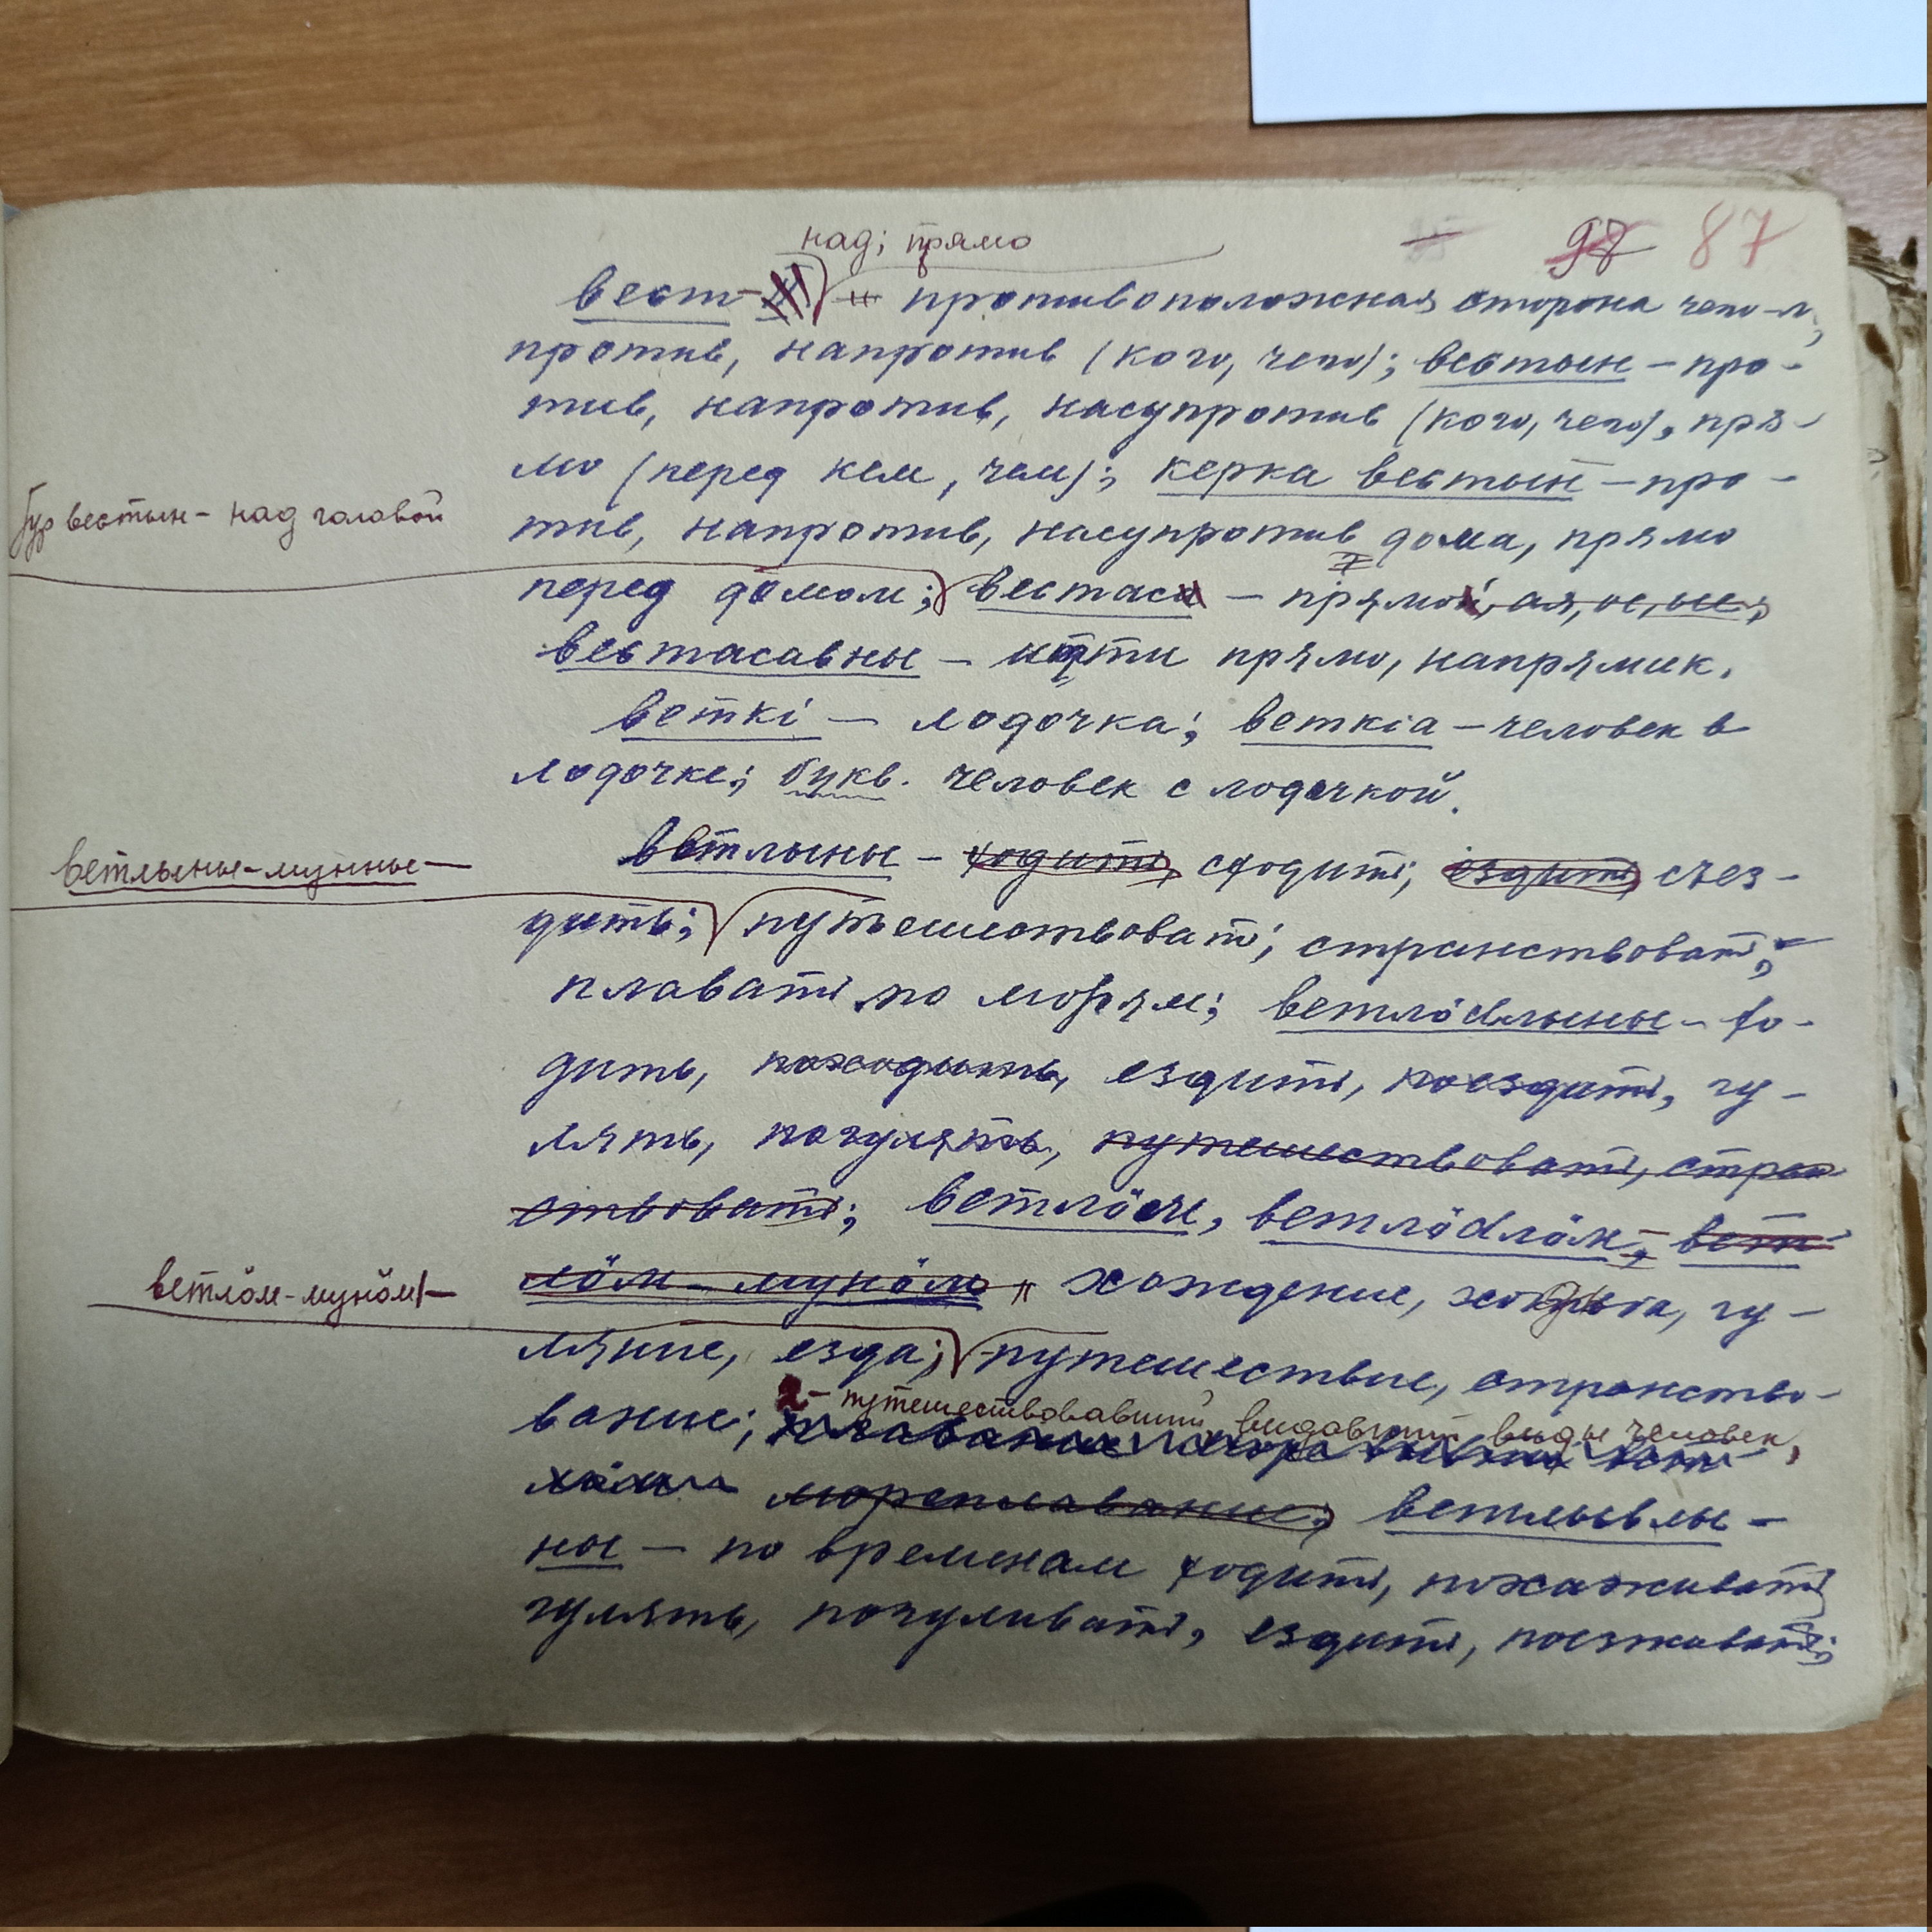 над; прямо
98 87
вест - противоположная сторона чего-л.,
против, напротив (кого, чего); вестын - про-
тив, напротив, насупротив (кого, чего), пря-
мо (перед кем, чем); керка вестын - про-
Јур вестын - над головой
тив, напротив, насупротив дома, прямо
перед домом; вестас - прямой, ая, ое, ые;
вестасавны - идти прямо, напрямик.
веткі - лодочка; веткіа - человек в
лодочке; букв. человек с лодочкой.
ветлыны - ходить, сходить; ездить, съез-
ветлыны-мунны -
дить; путешествовать; странствовать;
плавать по морям; ветлӧдлыны - хо-
дить, походить, ездить, поездить, гу-
лять, погулять, путешествовать, стран-
ствовать; ветлӧм, ветлӧдлӧм, - вет-
лӧм-мунӧм хождение, ходьба, гу-
ветлӧм-мунӧм -
ляние, езда; путешествие, странство-
- путешествовавший, видавший виды человек,
вание;
мореплавание; ветлывлы-
ны - по временам ходить, похаживать
гулять, погуливать, ездить, поезживать;